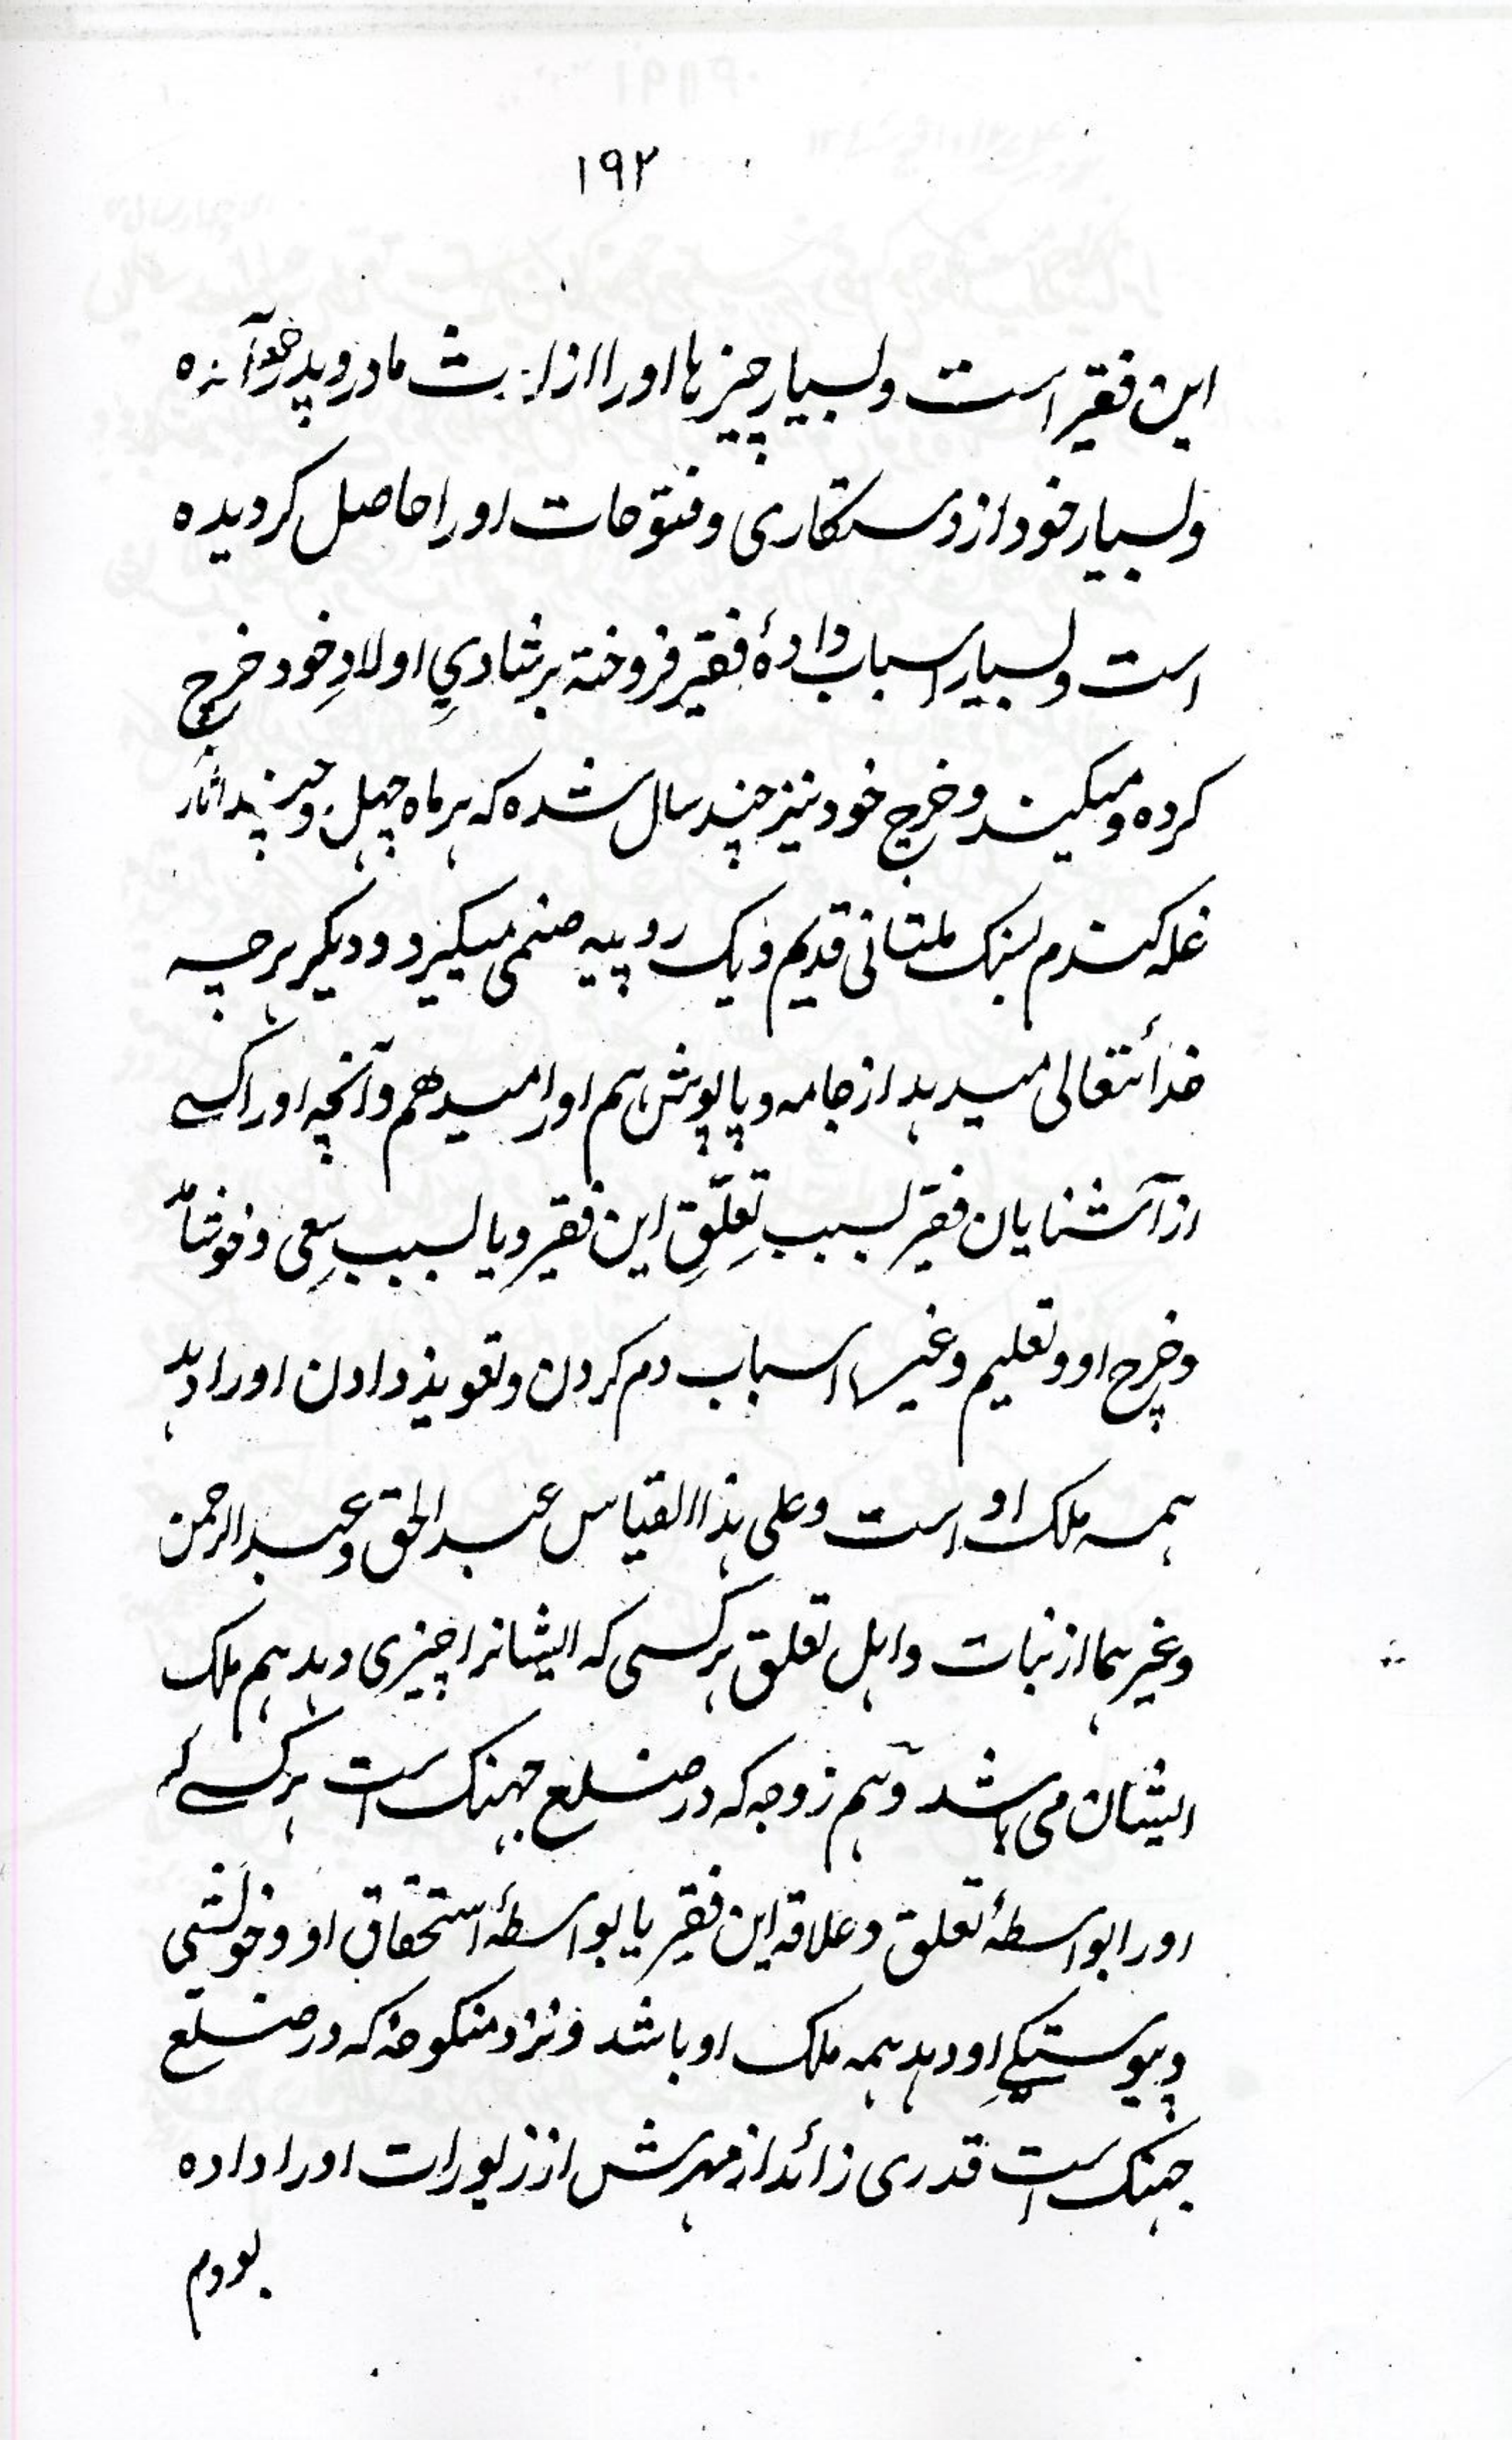 ۱۹۲
این فقیر است و بسیار چیزها اورا از ارث مادر و پدر خود آمده
و بسیار خود از دستکاری و فتوحات اورا حاصل کردیده
است و بسیار اسباب دادۂ فقیر فروخته بر شادیِ اولادِ خود خرچ
کرده و میکند و خرچ خود نیز چند سال شده که هر ماه چهل و چند اثار
غله کندم بسنک ملتانی قدیم و یک روپیه ضمنی میکیرد و دیکر هرچه
خدائتعالی میدهد از جامه و پاپوش هم اورا میدهم و آنچه اورا کسے
از آشنایان فقیر بسبب تعلّقِ این فقیر و یا بسبب سِعی و خوشامد
و خرچ او و تعلیم و غیرها اسباب دم کردن و تعویذ دادن اورا دهد
همه ملک او است و علی هذا القیاس عبد الحق و عبد الرحمن
و غیرهما از بنات و اهل تعلق هرکسی که ایشانرا چیزی دهد هم ملک
ایشان می باشد و هم زوجه که در ضلع جهنک است هرکسے که
اورا بواسطۂ تعلق و علاقہ این فقیر یا بواسطۂ استحقاق او و خویشی
و پیوستکےِ او دهد همه ملک او باشد و نزد منکوحه که در ضلع
جهنک است قدری زائد از مهرش از زیورات اورا داده
بودم